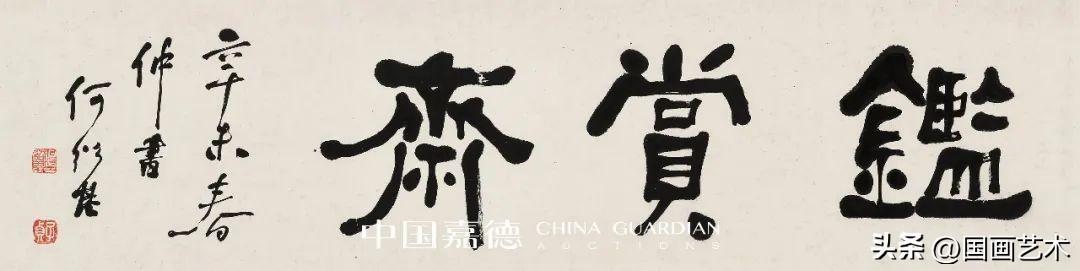 鑑賞齋
辛未春
仲書
何紹基
子貞
中国嘉德
CHINA GUARDIAN
AUCTIONS
头条 @国画艺术